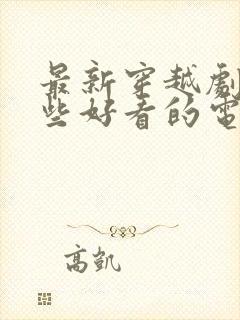 最新穿越劇
些好看的電
高凱